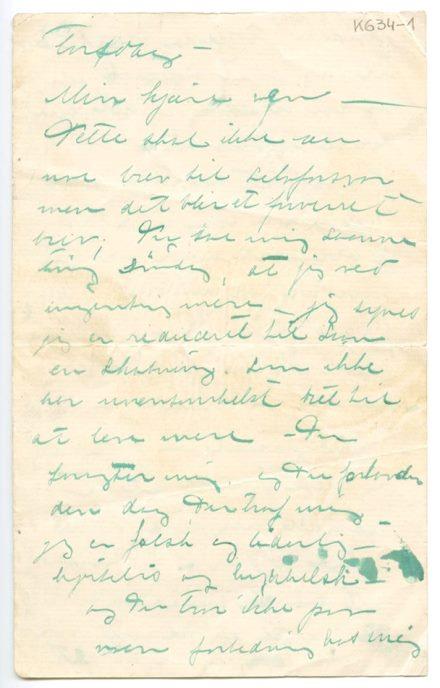 K634-1
Torsdag —
Min kjære ven —
Dette skal ikke være
noe brev til selvforsvar
men det blir et forvirret
brev, Du sae mig saamme
ting søndag, at jeg ved
ingenting mere — jeg synes
jeg er reduceret til som
en skabning, som ikke
har ret til
at leve mere — Du
foragter mig, og Du forbander
den dag, Du traf mig
jeg er falsk og liderlig —
og
og Du tror ikke paa
noen forbedring hos mig